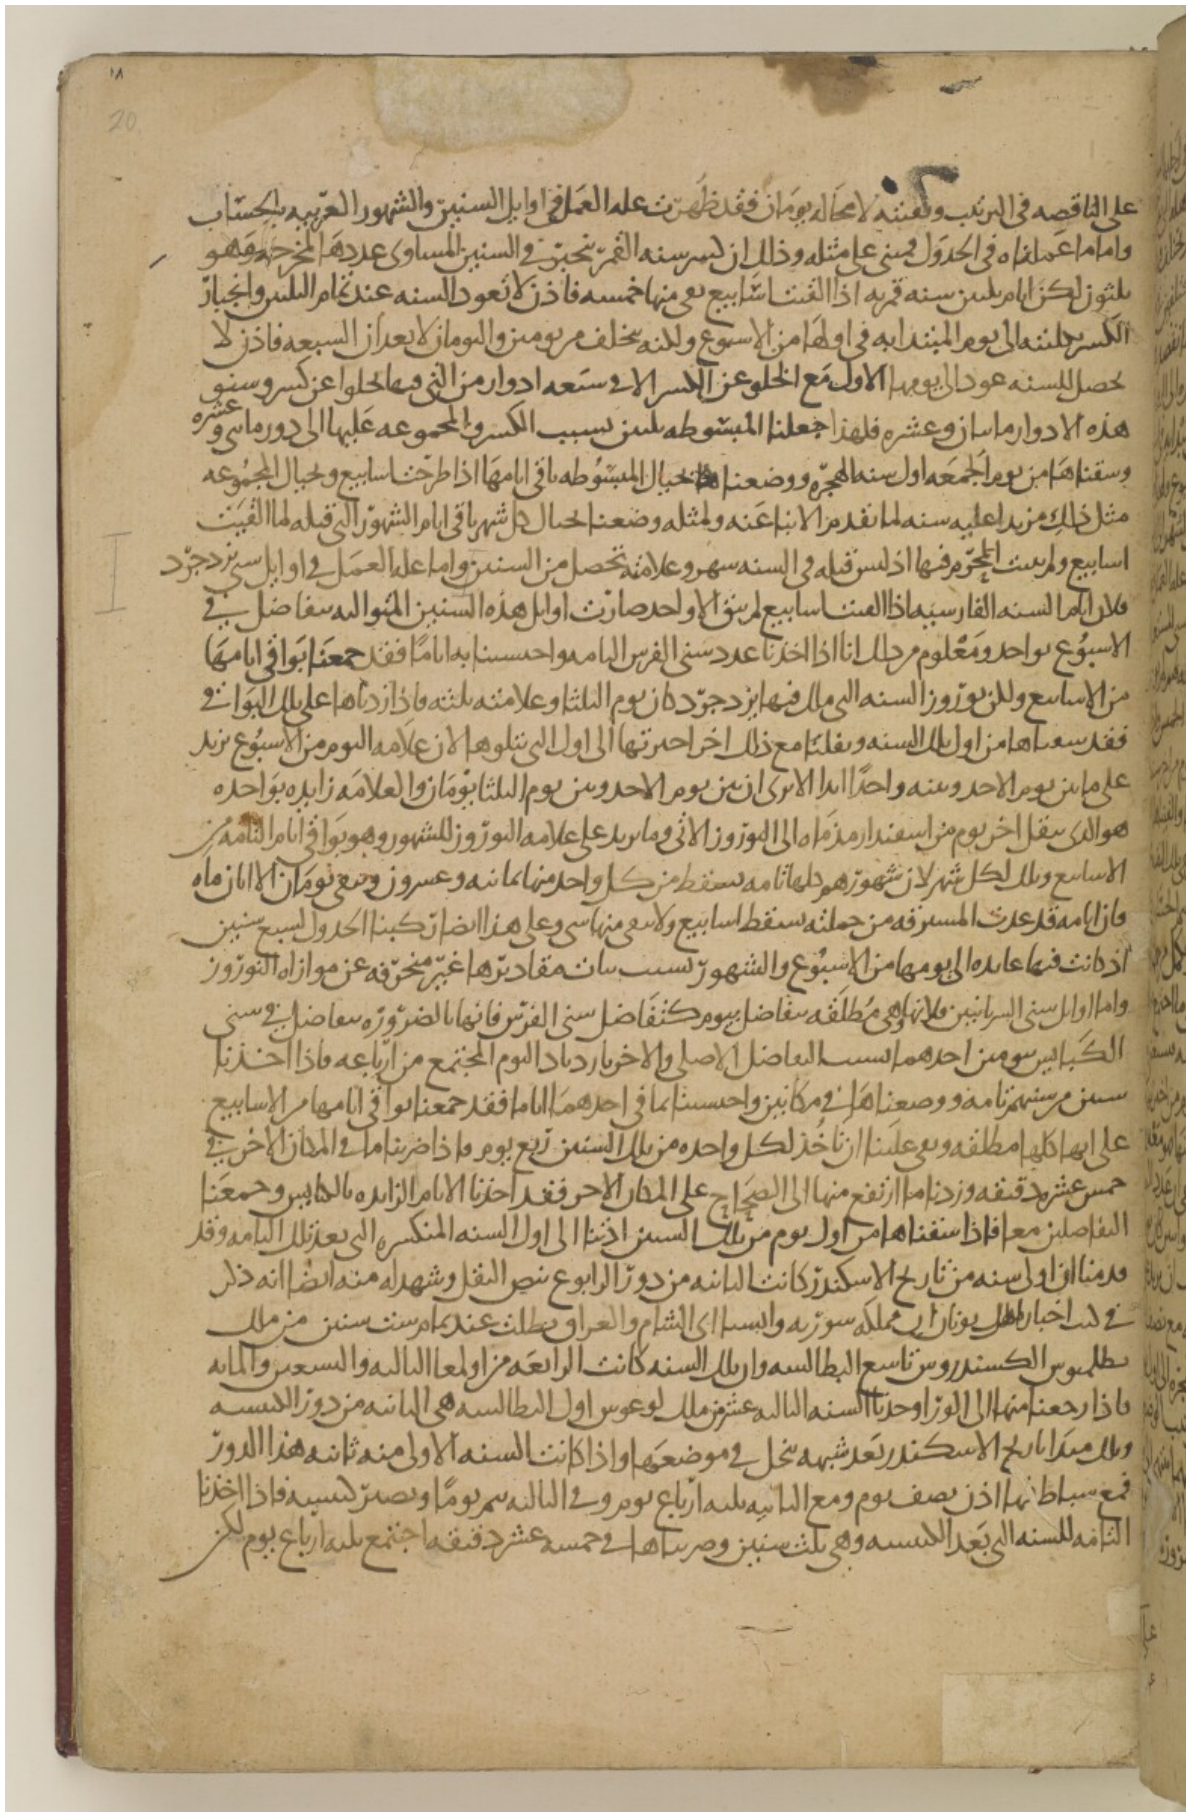 ١٨
20
على الناقصه في الترتيب وكفتنه لا محاله يومان فقد ظهرت عله العمل في اوايل السنين والشهور العربيه بالحساب
واما ما عملناه في الجدول فمبنى على مثله وذلك ان كسر سنه القمر ينجبر في السنين المساوى عددها لمخرجه وهو
ثلثون لكن ايام ثلثين سنه قمريه اذا القيت اسابيع بقى منها خمسه فاذن لا تعود السنه عند تمام الثلثين وانجبار
الكسر جملته الى يوم المبتدا به في اولها من الاسبوع ولكنه يتخلف عن يومين واليومان لا يعدان السبعه فاذن لا
تحصل للسنه عود الى يومها الاول مع الخلو عن الكسر الا في سبعه ادوار من التى فيها تخلوا عن كسر وسنو
هذه الادوار مايتان وعشره فلهذا جعلنا المبسوطه ثلثين بسبب الكسر والمجموعه عليها الى دور مايتى وعشره
وسقناها من يوم الجمعه اول سنه الهجره ووضعنا بحيال المبسوطه باقى ايامها اذا طرحت اسابيع وبحيال المجموعه
مثل ذلك مزيدا عليه سنه لما تقدم من الانبا عنه ولمثله وضعنا بحيال كل شهر باقى ايام الشهور التى قبله لما القيت
اسابيع ولم يثبت للمحرم فيها اذ ليس قبله في السنه شهر وعلامته تحصل من السنين واما عله العمل في اوايل سنى يزدجرد
فلان ايام السنه الفارسيه اذا القيت اسابيع لم يبق الا واحد صارت اوايل هذه السنين المتواليه تتفاضل في
الاسبوع بواحد ومعلوم من ذلك انا اذا اخذنا عدد سنى الفرس التامه واحتسبنا به اياما فقد جمعنا بواقى ايامها
من الاسابيع ولان نوروز السنه التى ملك فيها يزدجرد كان يوم الثلثا وعلامته ثلثه فاذا زدناها على تلك البواقى
فقد سقناها من اول تلك السنه ونقلنا مع ذلك اخر اخيرتها الى اول التى تتلوها لان علامه اليوم من الاسبوع تزيد
على ما بين يوم الاحد وبينه واحدا ابدا الا ترى ان بين يوم الاحد وبين يوم الثلثا يومان والعلامه زايده بواحده
هو الذى ينقل اخر يوم من اسفندارمذماه الى النوروز الاتى وما يزيد على علامه النوروز للشهور وهو بواقى ايام التامه من
الاسابيع وتلك لكل شهر لان شهورهم كلها تامه يسقط من كل واحد منها ثمانيه وعشرون ويبقى يومان الا ابان ماه
فان ايامه قد عدت المسترقه من جملته يسقط اسابيع ولا يبقى منها شى وعلى هذا ايضا ركبنا الجدول لسبع سنين
اذ كانت فيها عايده الى يومها من الاسبوع والشهور بسبب ثبات مقاديرها غير منحرفه عن موازاه النوروز
واما اوايل سنى السريانيين فلانها وهى مطلقه تتفاضل بيوم كتفاضل سنى الفرس فانها بالضروره تتفاضل في سنى
الكبايس بيومين احدهما بسبب التفاضل الاصلى والاخر بازدياد اليوم المجتمع من ارباعه فاذا اخذنا
سنين من سنيهم تامه ووضعناها في مكانين واحتسبنا بما في احدهما اياما فقد جمعنا بواقى ايامها من الاسابيع
على انها كلها مطلقه وبقى علينا ان ناخذ لكل واحده من تلك السنين ربع يوم فاذا ضربنا ما في المكان الاخر في
خمس عشره دقيقه وزدنا ما ارتفع منها الى الصحاح على المكان الاخر فقد اخذنا الايام الزايده بالكبايس وجمعنا
التفاضلين معا فاذا سقناها من اول يوم من تلك السنين ادتنا الى اول السنه المنكسره التى بعد تلك التامه وقد
قدمنا ان اولى سنه من تاريخ الاسكندر كانت الثانيه من دور الرابوع بنص النقل وشهد له منه ايضا انه ذكر
في كتب اخبار اهل يونان ان مملكه سوريه وايسيا اى الشام والعراق بطلت عند تمام ست سنين من ملك
بطلميوس الكسندروس تاسع البطالسه وان تلك السنه كانت الرابعه من اولمفيا الثالثه والتسعين والمايه
فاذا رجعنا منها الى الورا وجدنا السنه الثالثه عشر من ملك لوغوس اول البطالسه هى الثانيه من دور الكبيسه
وتلك مبدا تاريخ الاسكندر بعد شبهه تنحل في موضعها واذا كانت السنه الاولى منه ثانيه هذا الدور
فمع سباط تها اذن نصف يوم ومع الثانيه ثلثه ارباع يوم وفي الثالثه يتم يوما وتصير كبيسه فاذا اخذنا
التامه للسنه التى بعد الكبيسه وهى ثلث سنين وضربناها في خمسه عشر دقيقه اجتمع ثلثه ارباع يوم لكن